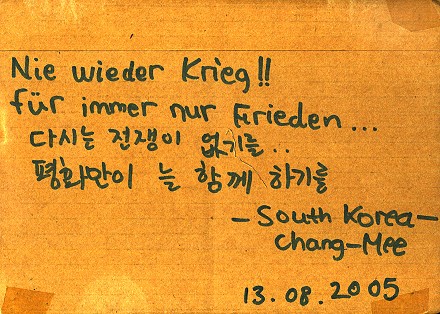 Nie wieder Krieg!!
für immer nur Frieden...
다시는 전쟁이 없기를..
평화만이 늘 함께 하기를
- South Korea -
Chang-Mee
13.08.2005